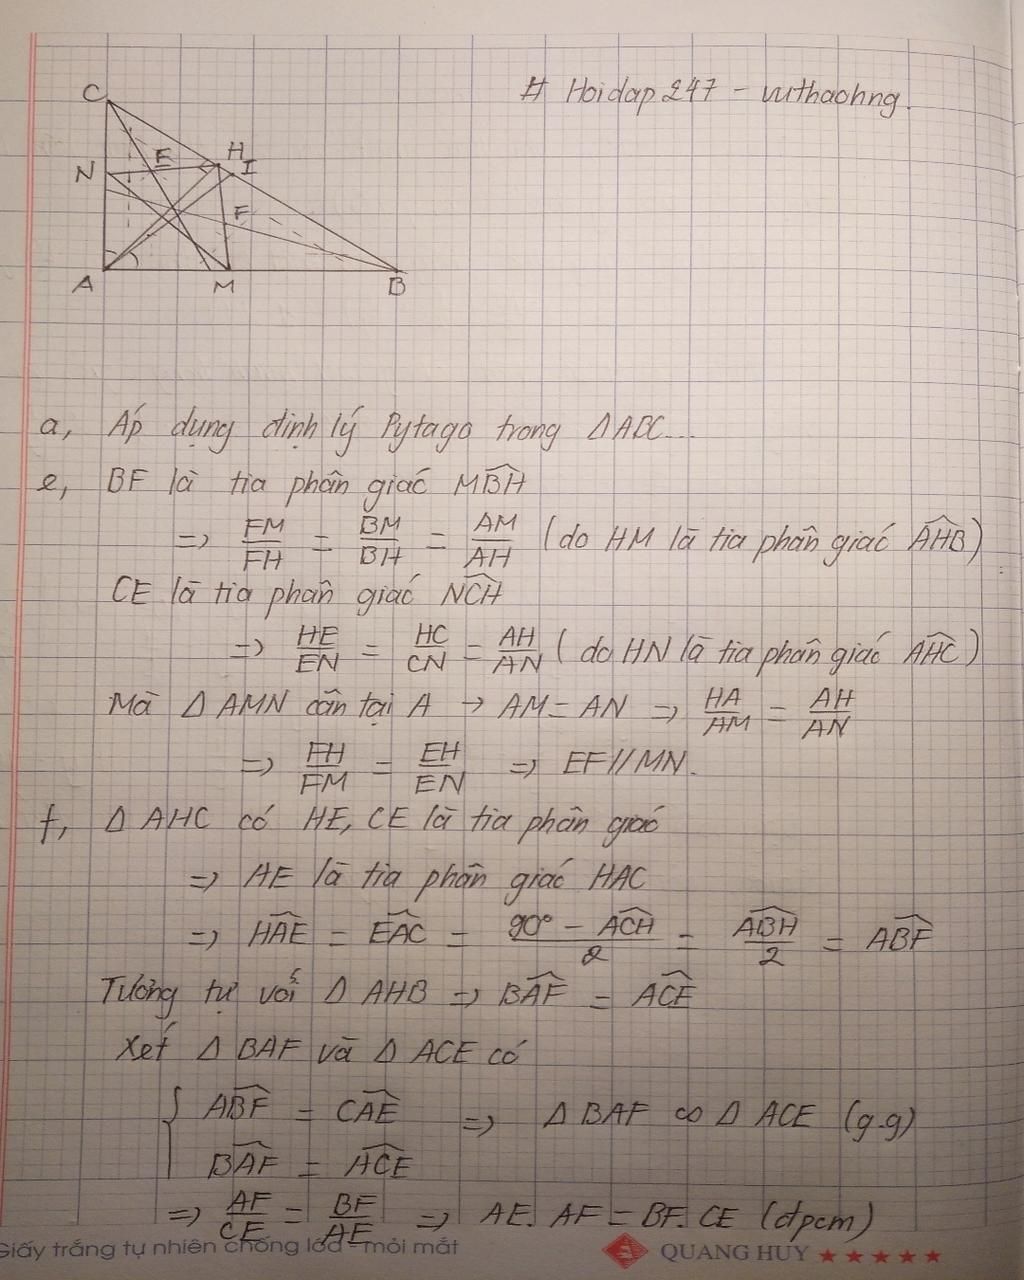 # Hoidap 247 - vuthaohng.
C
N
E
H
I
F
A
M
B
a, Áp dụng định lý Pytago trong ΔABC...
e, BF là tia phân giác \widehat{MBH}
=> FM/FH = BM/BH = AM/AH (do HM là tia phân giác \widehat{AHB})
CE là tia phân giác \widehat{NCH}
=> HE/EN = HC/CN = AH/AN (do HN là tia phân giác \widehat{AHC})
Mà Δ AMN cân tại A → AM = AN => HA/AM = AH/AN
=> FH/FM = EH/EN => EF // MN.
f, Δ AHC có HE, CE là tia phân giác
=> AE là tia phân giác HAC
=> \widehat{HAE} = \widehat{EAC} = (90° - \widehat{ACH})/2 = \widehat{ABH}/2 = \widehat{ABF}
Tương tự với Δ AHB => \widehat{BAF} = \widehat{ACE}
Xét Δ BAF và Δ ACE có
{ \widehat{ABF} = \widehat{CAE} => Δ BAF ∽ Δ ACE (g.g)
\widehat{BAF} = \widehat{ACE}
=> AF/CE = BF/AE => AE. AF = BF. CE (đpcm)
Giấy trắng tự nhiên chống lóa - mỏi mắt QUANG HUY ★★★★★